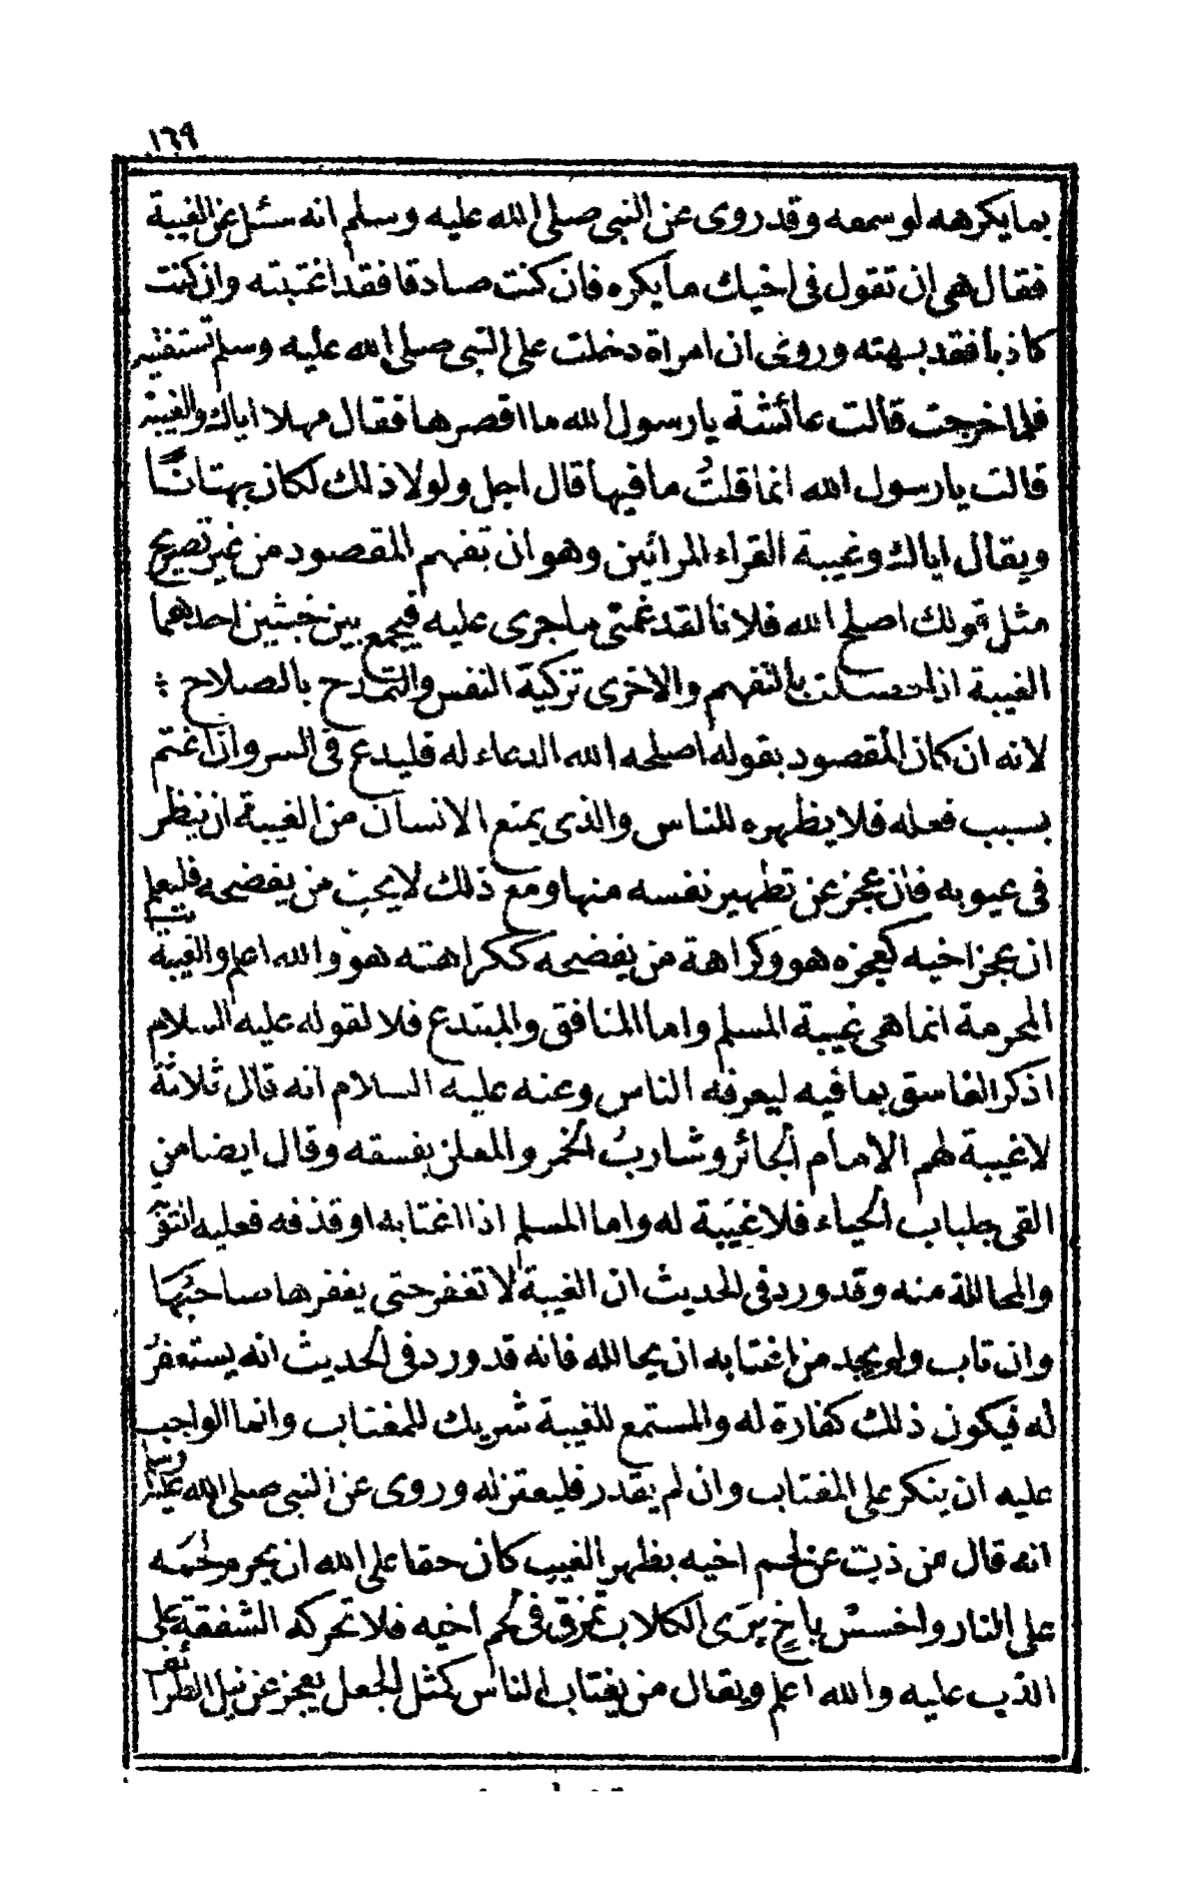 ١٦٩
بما يكرهه لو سمعه وقد روى عن النبى صلى الله عليه وسلم انه سئل عن الغيبة
فقال هى ان تقول فى اخيك ما يكره فان كنت صادقا فقد اغتبته وان كنت
كاذبا فقد بهته وروى ان امراة دخلت على النبى صلى الله عليه وسلم تستفتيه
فلما خرجت قالت عائشة يا رسول الله ما اقصرها فقال مهلا اياك والغيبة
قالت يا رسول الله انما قلت ما فيها قال اجل ولولا ذلك لكان بهتانا
ويقال اياك وغيبة القراء المرائين وهو ان تفهم المقصود من غير تصريح
مثل قولك اصلح الله فلانا لقد غمنى ما جرى عليه فيجمع بين خبثين احدهما
الغيبة اذا حصلت بالتفهم والاخرى تزكية النفس والتمدح بالصلاح
لانه ان كان المقصود بقوله اصلحه الله الدعاء له فليدع فى السر وان اغتم
بسبب فعله فلا يظهره للناس والذى يمنع الانسان من الغيبة ان ينظر
فى عيوبه فان عجز عن تطهير نفسه منها ومع ذلك لا يحب من يفضحه فليعلم
ان عجز اخيه كعجزه هو وكراهة من يفضحه ككراهته هو والله اعلم والغيبة
المحرمة انما هى غيبة المسلم واما المنافق والمبتدع فلا لقوله عليه السلام
اذكر الفاسق بما فيه ليعرفه الناس وعنه عليه السلام انه قال ثلاثة
لا غيبة لهم الامام الجائر وشارب الخمر والمعلن بفسقه وقال ايضا من
القى جلباب الحياء فلا غيبة له واما المسلم اذا اغتابه او قذفه فعليه التوبة
والمحاللة منه وقد ورد فى الحديث ان الغيبة لا تغفر حتى يغفرها صاحبها
وان تاب ولم يجد من اغتابه ان يحالله فانه قد ورد فى الحديث انه يستغفر
له فيكون ذلك كفارة له والمستمع للغيبة شريك للمغتاب وانما الواجب
عليه ان ينكر على المغتاب وان لم يقدر فليعتزله وروى عن النبى صلى الله عليه وسلم
انه قال من ذب عن لحم اخيه بظهر الغيب كان حقا على الله ان يحرم لحمه
على النار واخسس باخ يرى الكلاب تمزق فى لحم اخيه فلا تحركه الشفقة على
الذب عليه والله اعلم ويقال من يغتاب الناس كمثل الجعل يعجز عن نيل